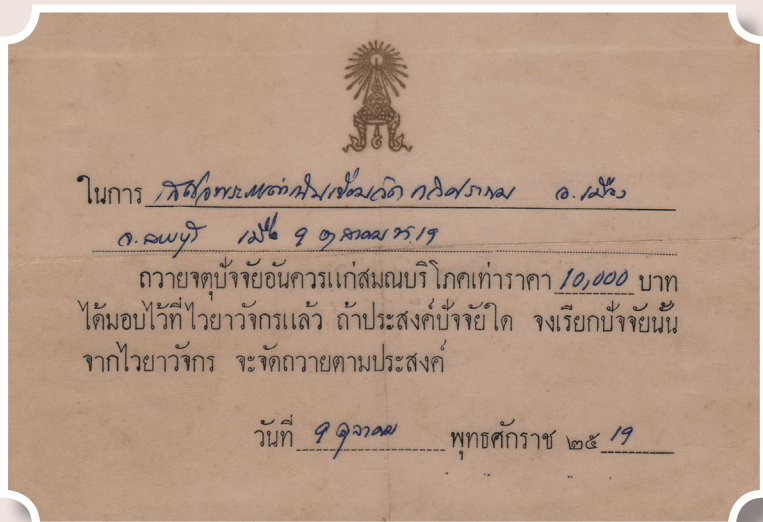 ในการ เสด็จพระราชดำเนินเยี่ยมวัด กวิศราราม อ.เมือง
จ.ลพบุรี เมื่อ ๑ ตุลาคม ๑๙
ถวายจตุปัจจัยอันควรแก่สมณบริโภคเท่าราคา 10,000 บาท
ได้มอบไว้ที่ไวยาวัจกรแล้ว ถ้าประสงค์ปัจจัยใด จงเรียกปัจจัยนั้น
จากไวยาวัจกร จะจัดถวายตามประสงค์
วันที่ ๑ ตุลาคม พุทธศักราช ๒๕ 19